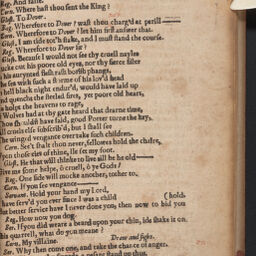 Corn. Where hast thou sent the King?
Glost. To Dover.
Reg. Wherefore to Dover? wast thou charg'd at perill
Corn. Wherefore to Dover? let him first answer that.
Glost. I am tide tot'h stake, and I must stand the course.
Reg. Wherefore to Dover sir?
Glost. Because I would not see thy cruell nayles
ucke out his poore old eyes, nor thy fierce sister
his aurynted flesh rash borish phangs,
he sea with such a storme of his lov'd head
hell black night endur'd, would have laid up
nd quencht the steeled fires, yet poore old heart,
e holpt the heavens to rage,
Wolves had at thy gate heard that dearne time,
Thou shouldst have said, good Porter turne the key,
ll cruels else subscrib'd, but I shall see
The winged vengeance over take such children.
Corn. See't shalt thou never, fellowes hold the chaire,
pon those eies of thine, Ile set my foot.
Glost. He that will thinke to live till he be old
Give me some helpe, ô cruell, ô ye Gods!
Reg. One side will mocke another, tother to.
Corn. If you see vengeance
Servant. Hold your hand my Lord, (hold.
have serv'd you ever since I was a child
But better service have I never done you, then now to bid you
Reg. How now you dog.
Ser. If you did weare a beard upon your chin, ide shake it on
his quarrell, what do you meane?
Corn. My villaine. Draw and fight.
Ser. Why then come one, and take the chance of anger.